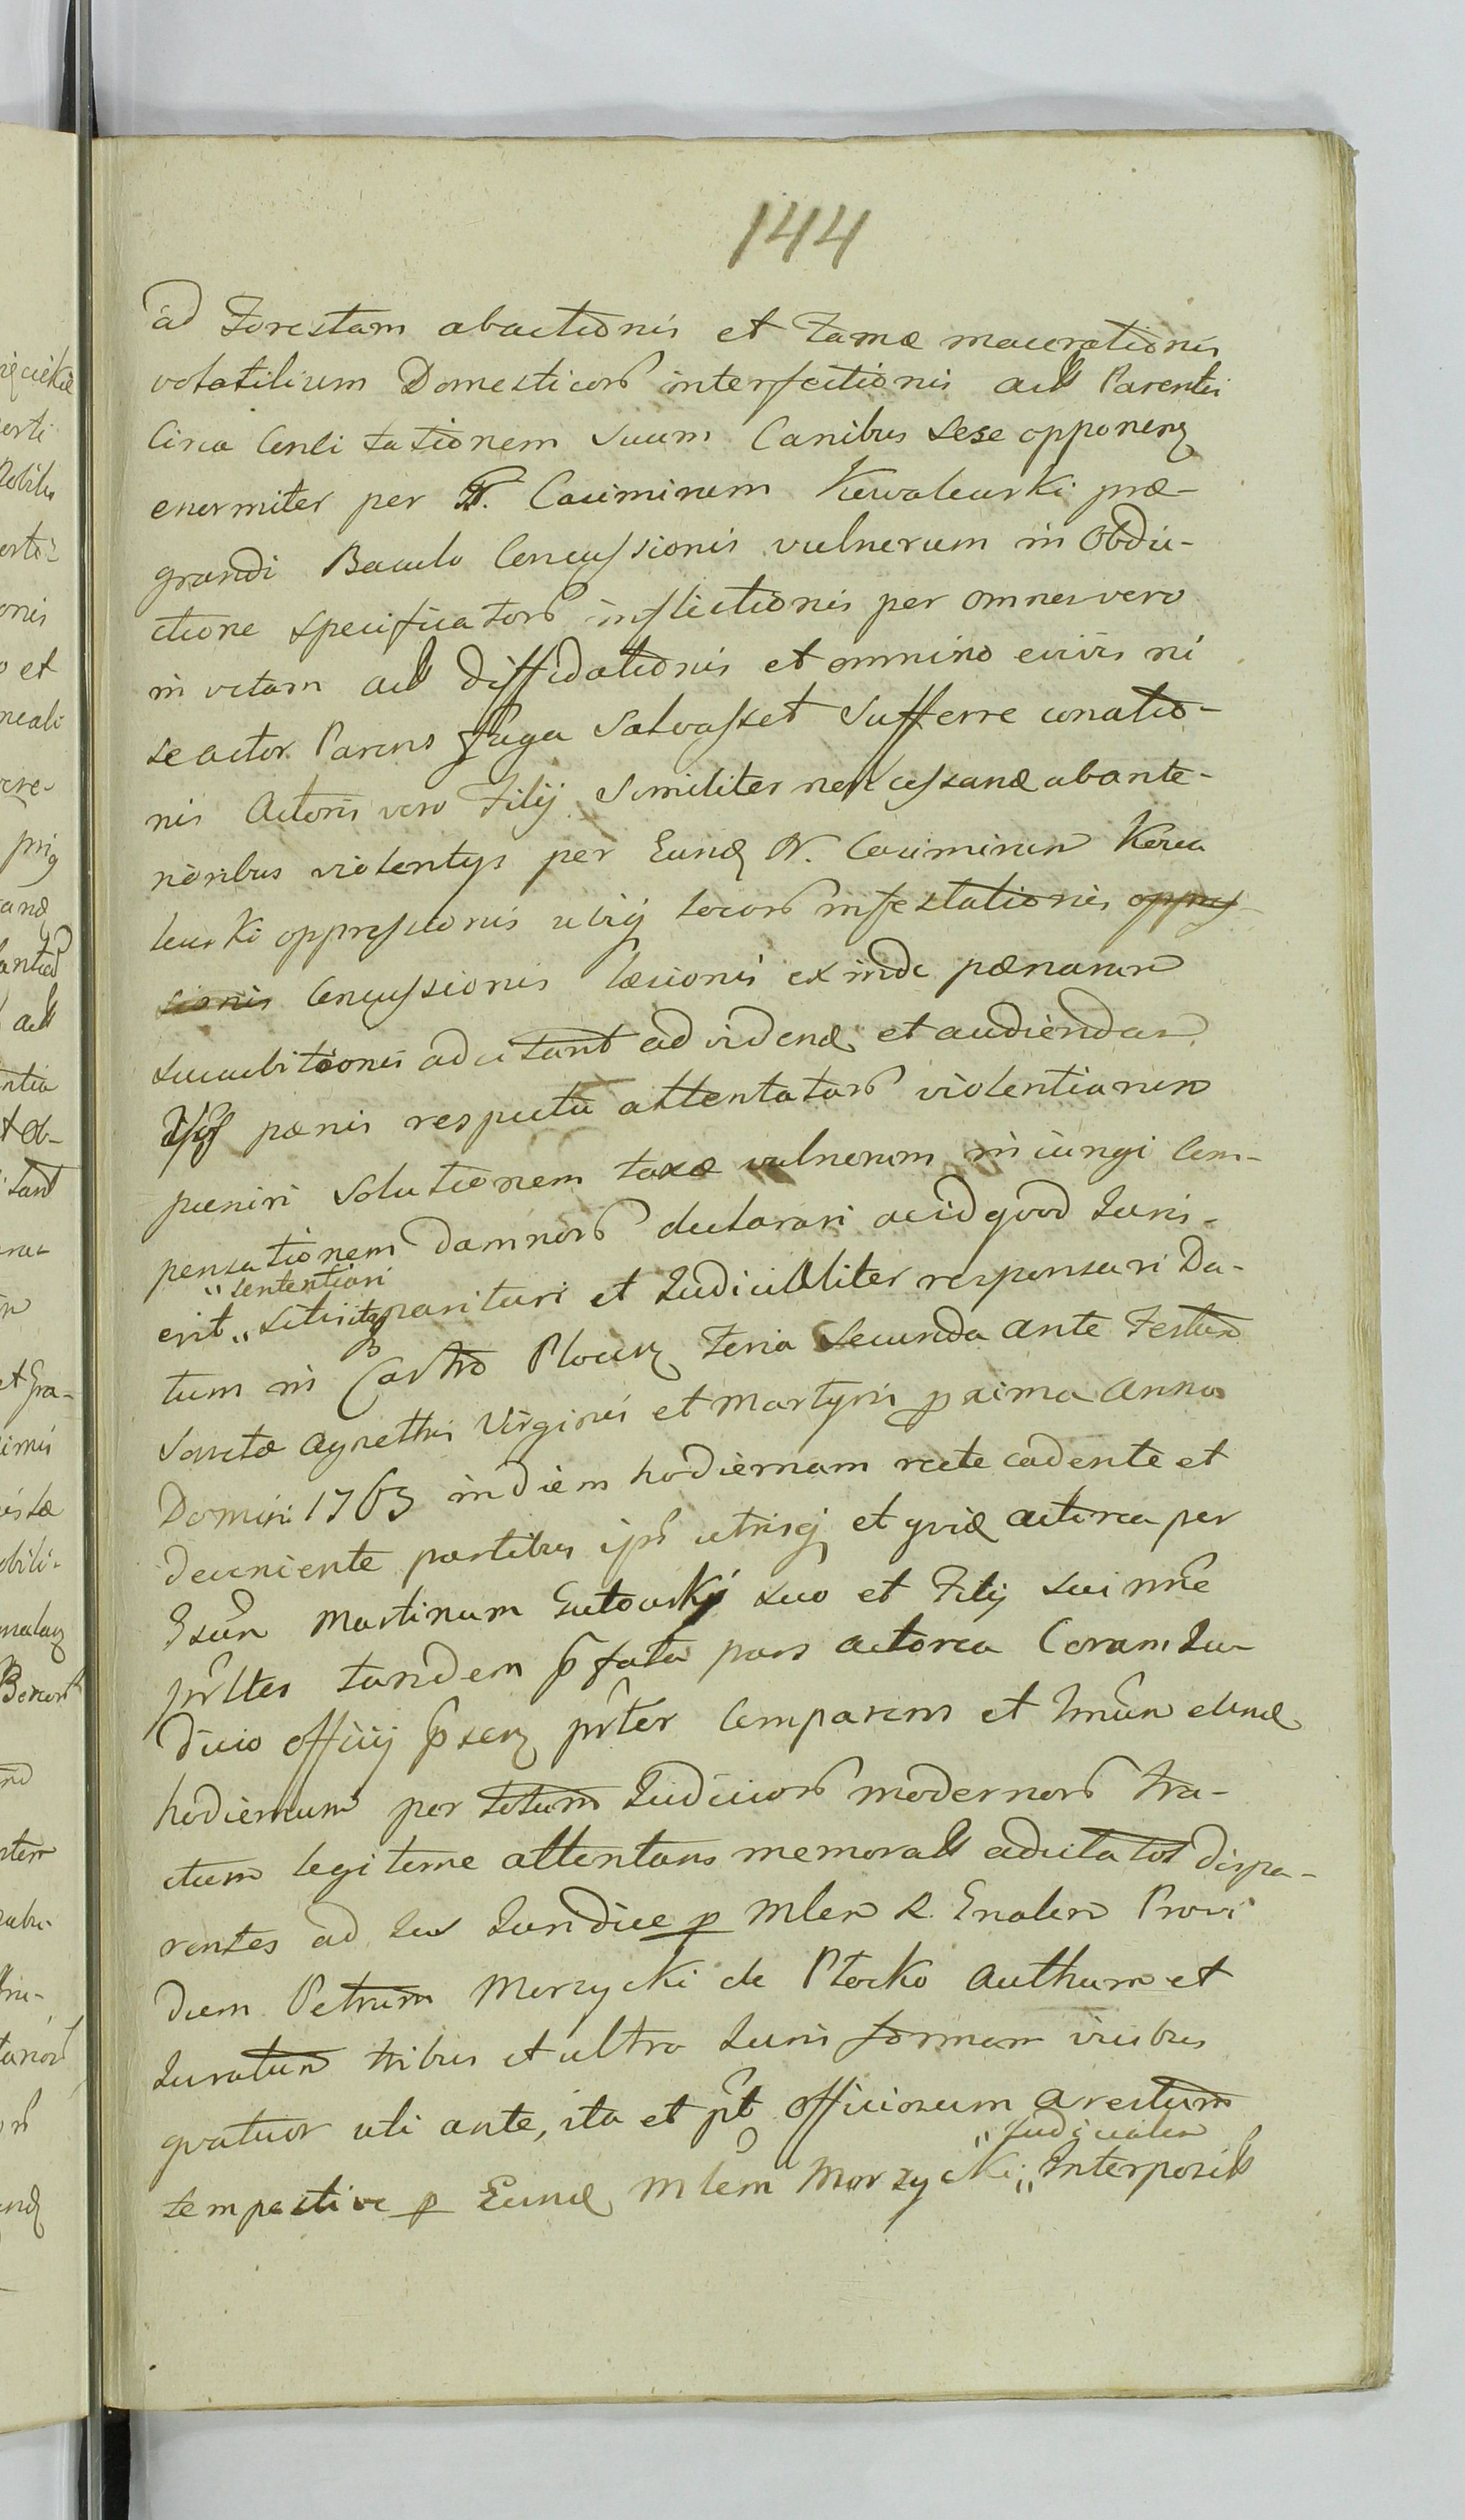 144
ad Forestam abactionis et Famæ macerationis
volatilium Domesticorū interfectionis ack Parentis
Circa Conlitationem suum Canibus sese opponenꝫ
enormiter per N. Casimirum Kowalewski præ-
grandi Baculo Concussionis vulnerum in Obdu-
ctione specificatorū inflictionis per omnes vero
in vitam ack diffidationis et omnino eius ni
se actor Parens fuga salvasset Sufferre conatio-
nis Actoris vero Filij Similiter
noribus violentys per Eund N. Casimirum Kowa
lewski oppressionis ubiq locorū infestationis oppres-
sionis Concussionis læsionis ex inde pænarum
succubitionis adcitant ad videnđ et audiendum
Ipsos pænis respectu attentatarū violentiarum
puniri solutionem taxæ vulnerum iniungi Com-
pensationem damnorū declarari acid quod Juris
"sententiari
erit " parituri et Judicialiter responsuri Da-
tum in Castro Plocenꝫ Feria Secunda ante Festum
Sanctæ Agnethis Virginis et Martyris pxima Anno
Domini 1763 in diem hodiernam recte cadente et
deveniente partibus ips utrisq et quid actorea per
Gsūm Martinum Gutowski suo et Filij sui nn̄e
pn̄ltes tandem p̄fata pars actorea Coram Ju-
dicio officij p̄senꝫ pn̄ter Comparens et Tmn̄um eund
hodiernum per totum Judiciorū modernorū tra-
ctum legitime attentans memorak adcitatos dispa-
rentes ad Jus Juridice p Mlem R. Gnalem Provi
dum Petrum Morzycki de Plocko Authum et
Juratum tribus et ultra Juris formam vicibus
quatuor uti ante, ita et pt officiosum arestum
"Judicialem
tempestive p Eund Mlem Morzycki " Interposik